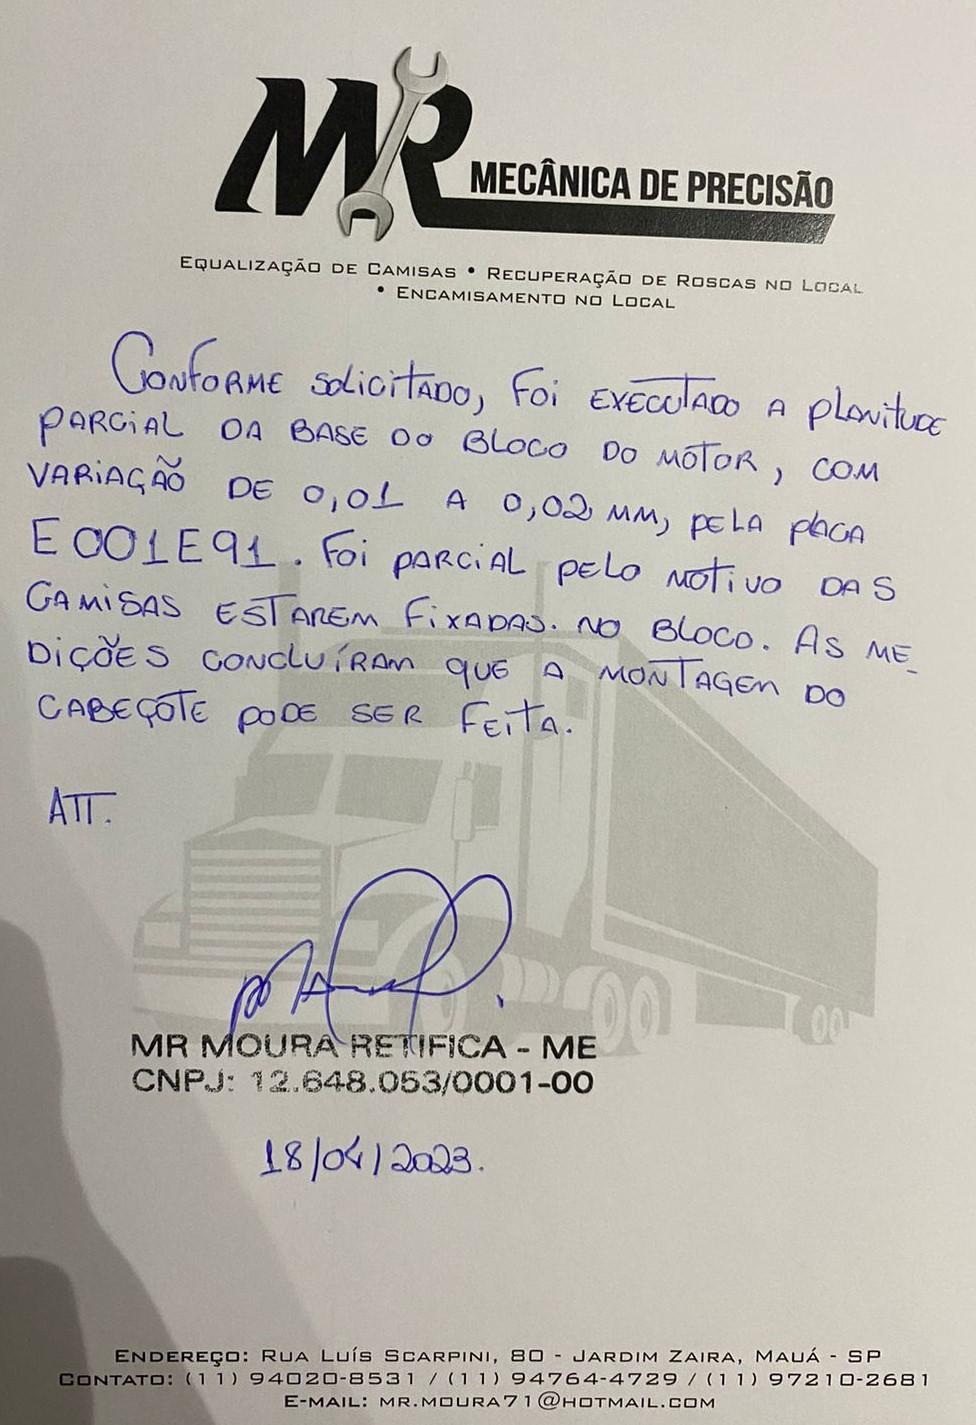 MR MECÂNICA DE PRECISÃO
EQUALIZAÇÃO DE CAMISAS • RECUPERAÇÃO DE ROSCAS NO LOCAL
• ENCAMISAMENTO NO LOCAL
CONFORME SOLICITADO, FOI EXECUTADO A PLANITUDE
PARCIAL DA BASE DO BLOCO DO MOTOR, COM
VARIAÇÃO DE 0,01 A 0,02 MM, PELA PLACA
E001E91. FOI PARCIAL PELO MOTIVO DAS
CAMISAS ESTAREM FIXADAS. NO BLOCO. AS ME_
DIÇÕES CONCLUÍRAM QUE A MONTAGEM DO
CABEÇOTE PODE SER FEITA.
ATT.
MR MOURA RETIFICA - ME
CNPJ: 12.648.053/0001-00
18/04/2023.
ENDEREÇO: RUA LUÍS SCARPINI, 80 - JARDIM ZAIRA, MAUÁ - SP
CONTATO: (11) 94020-8531 / (11) 94764-4729 / (11) 97210-2681
E-MAIL: MR.MOURA71@HOTMAIL.COM